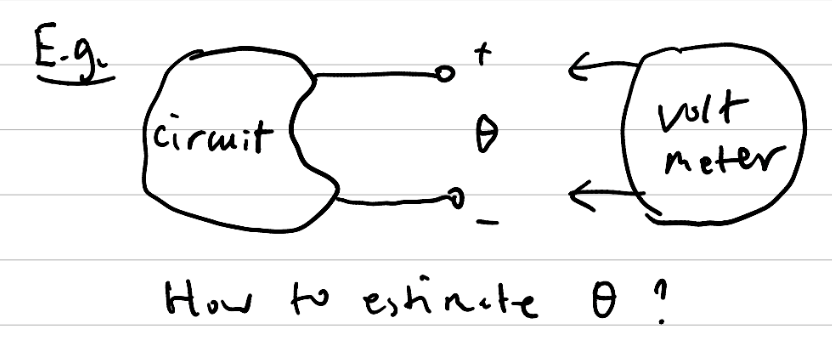 E.g.
+
circuit
θ
volt
meter
−
How to estimate θ ?